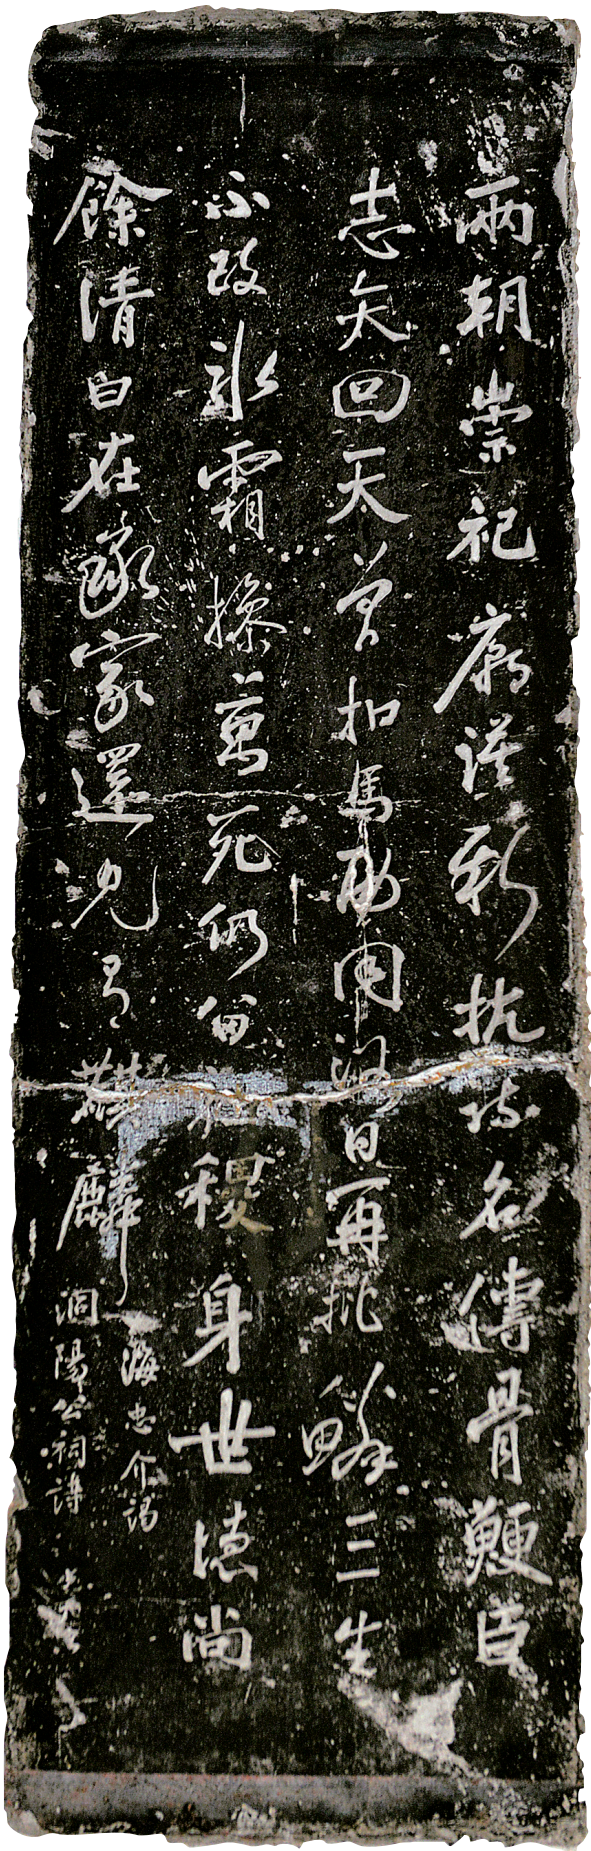 兩朝崇祀廟謨新抗疏名傳骨鯁臣
志矢回天曾扣馬功同浴日再批鱗三生
不改氷霜操萬死仍留社稷身世德尚
餘清白在承家還見有麒麟
海忠介謁
洞陽公祠詩